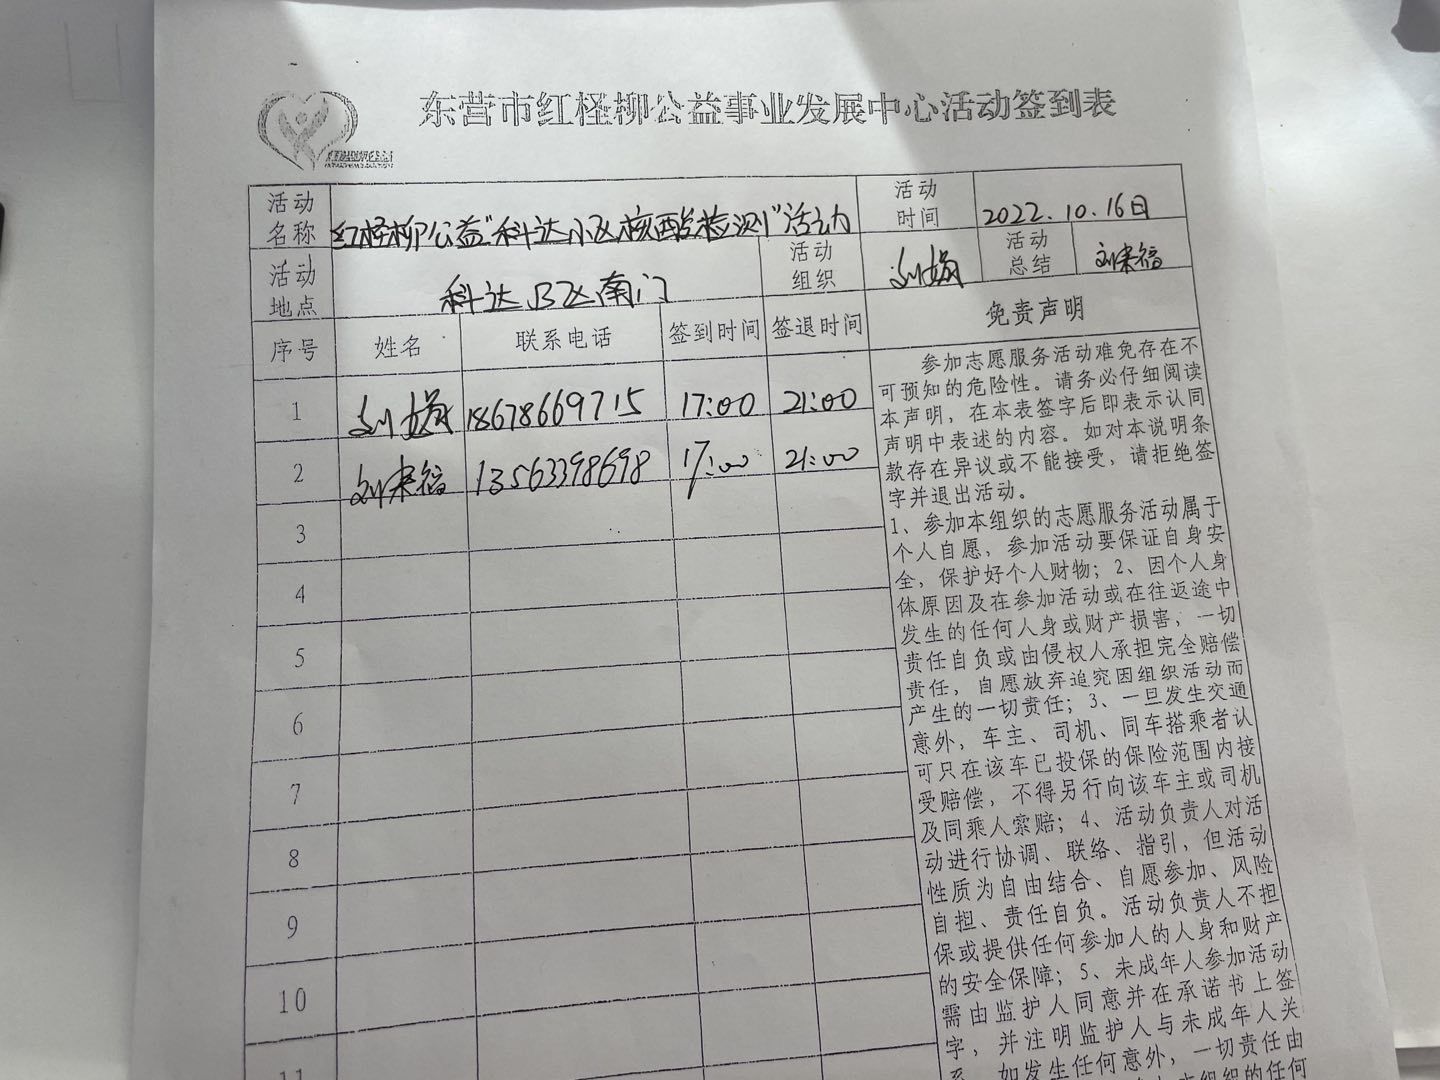 东营市红柽柳公益事业发展中心活动签到表
活动名称 红柽柳公益"科达小区核酸检测"活动 活动时间 2022.10.16日
活动地点 科达B区南门 活动组织 刘娟 活动总结 刘来福
序号 姓名 联系电话 签到时间 签退时间 免责声明
1 刘娟 18678669715 17:00 21:00
2 刘来福 13563398698 17:00 21:00
3
4
5
6
7
8
9
10
11
参加志愿服务活动难免存在不
可预知的危险性。请务必仔细阅读
本声明，在本表签字后即表示认同
声明中表述的内容。如对本说明条
款存在异议或不能接受，请拒绝签
字并退出活动。
1、参加本组织的志愿服务活动属于
个人自愿，参加活动要保证自身安
全，保护好个人财物；2、因个人身
体原因及在参加活动或在往返途中
发生的任何人身或财产损害，一切
责任自负或由侵权人承担完全赔偿
责任，自愿放弃追究因组织活动而
产生的一切责任；3、一旦发生交通
意外，车主、司机、同车搭乘者认
可只在该车已投保的保险范围内接
受赔偿，不得另行向该车主或司机
及同乘人索赔；4、活动负责人对活
动进行协调、联络、指引，但活动
性质为自由结合、自愿参加、风险
自担、责任自负。活动负责人不担
保或提供任何参加人的人身和财产
的安全保障；5、未成年人参加活动
需由监护人同意并在承诺书上签
字，并注明监护人与未成年人关
系，如发生任何意外，一切责任由
本组织的任何